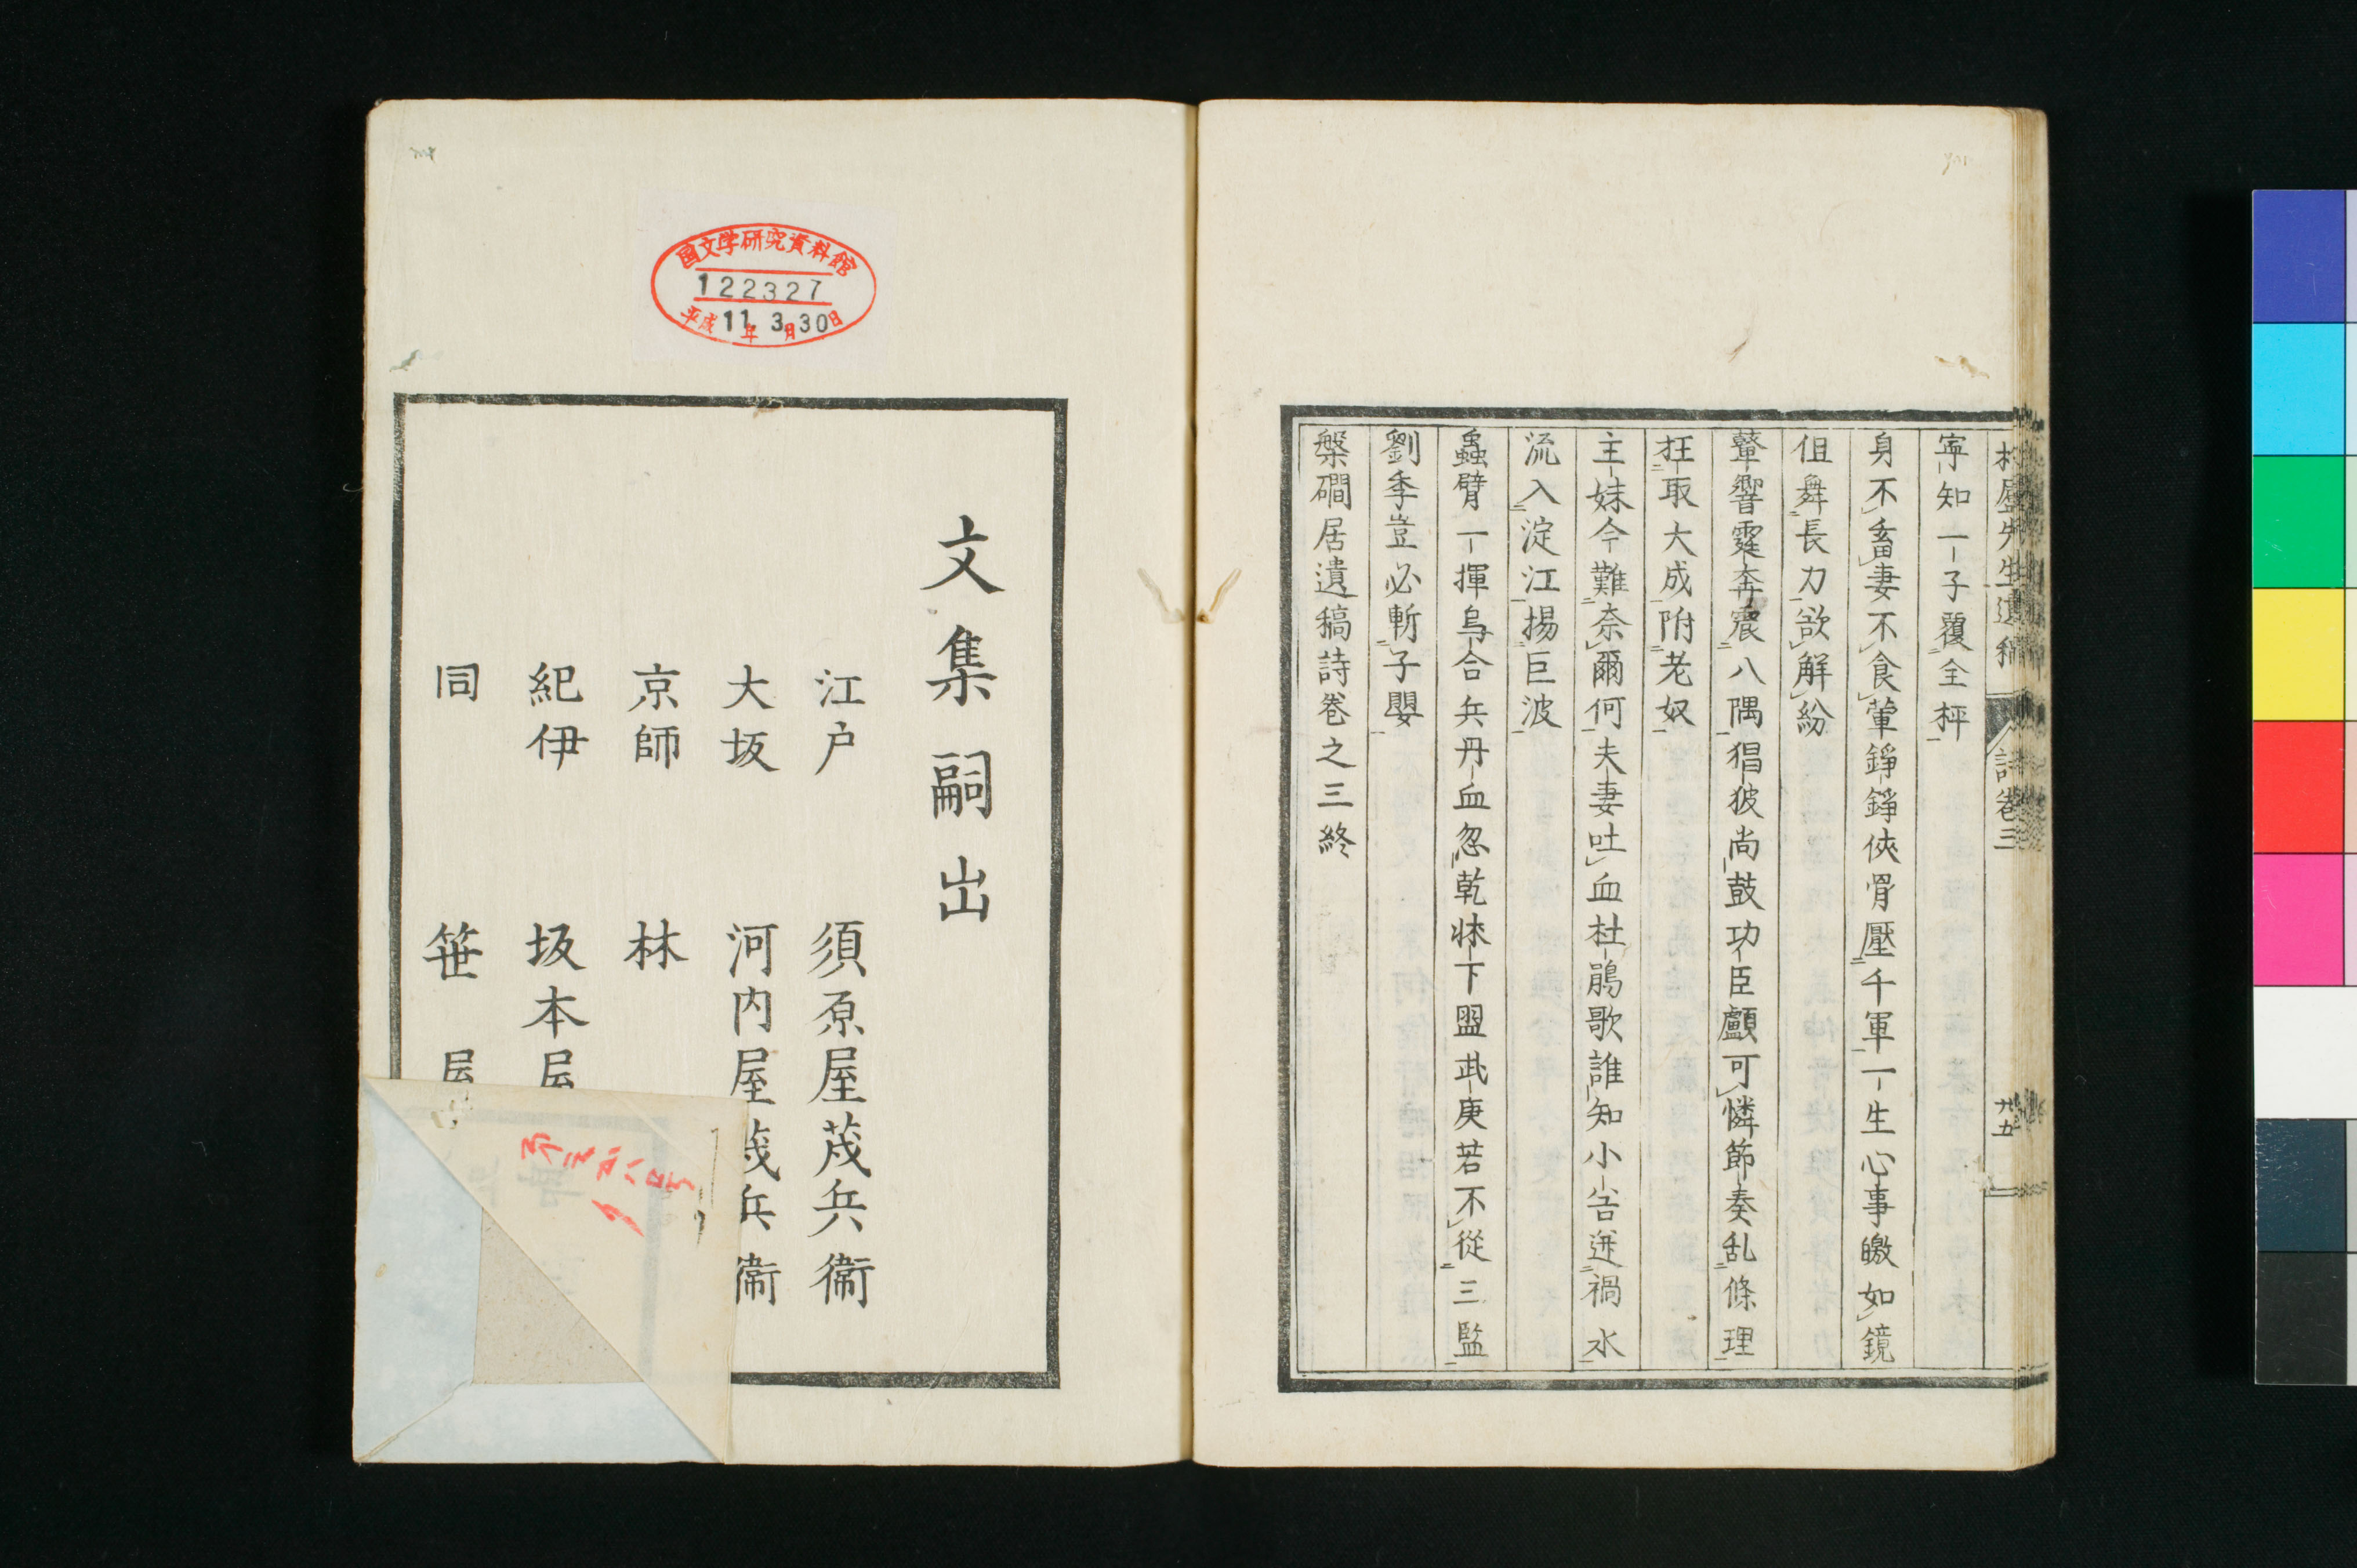 寧知一子覆全枰
身不畜妻不食葷錚錚俠骨壓千軍一生心事皦如鏡
但舞長刀欲解紛
鼙響霆奔震八隅猖狓尚鼓功臣顱可憐節奏乱條理
狂取大成附老奴
主妹今難奈爾何夫妻吐血杜鵑歌誰知小吿迸禍水
流入淀江揚巨波
螽臂一揮烏合兵丹血忽乾牀下盟武庚若不從三監
劉季豈必斬子嬰
槃磵居遺稿詩卷之三終
詩卷三
廿五
国文学研究資料館
122327
平成11年3月30日
文集嗣出
江戸 須原屋茂兵衞
大坂 河内屋茂兵衞
京師 林
紀伊 坂本屋
同 笹屋